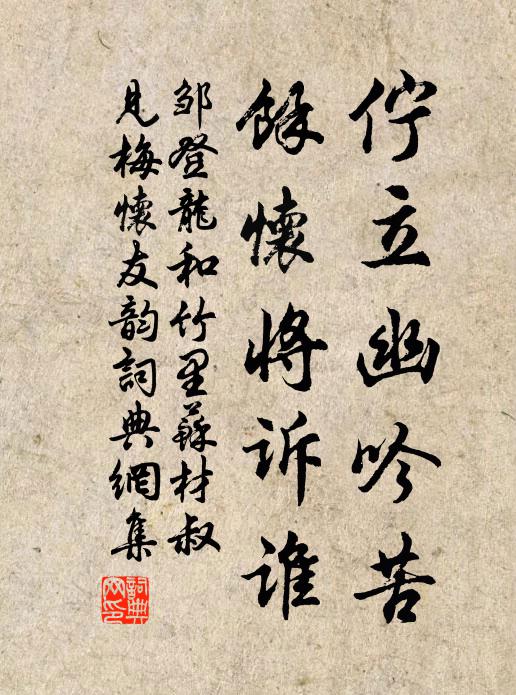 佇立幽吟苦
餘懷將訴誰
鄒登龍和竹里蘇材叔
見梅懷友韵詞典網集
詞典
网印